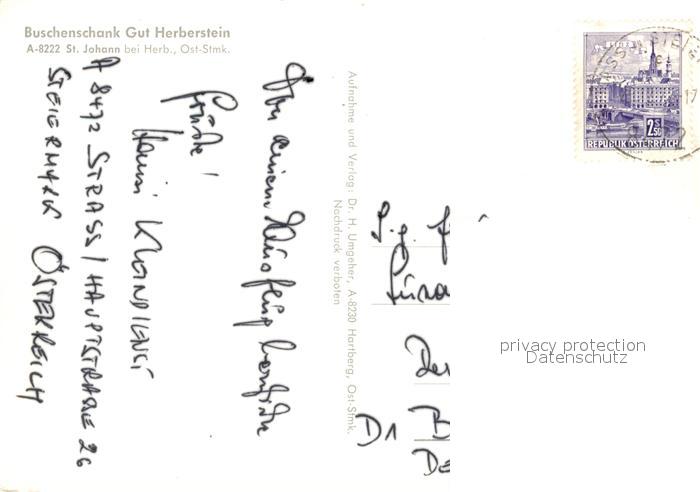 Buschenschank Gut Herberstein
A-8222 St. Johann bei Herb., Ost-Stmk.
Von einem Ausflug herzliche
Grüße!
Hansi
A 8472 STRASS / HAUPTSTRASSE 26
STEIERMARK ÖSTERREICH
Aufnahme und Verlag: Dr. H. Umgeher, A-8230 Hartberg, Ost-Stmk.
Nachdruck verboten
S.g.
D
2.S
50
REPUBLIK ÖSTERREICH
privacy protection
Datenschutz